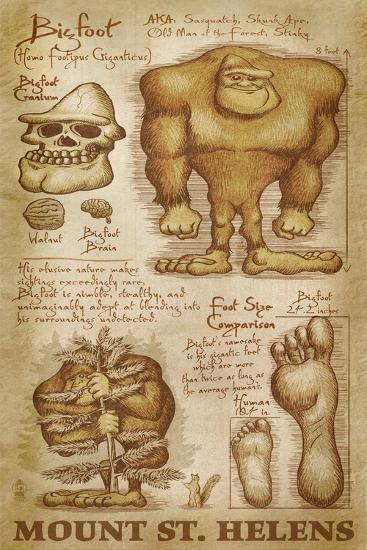 Bigfoot
(Homo Footipus Giganticus)
AKA: Sasquatch, Skunk Ape,
Old Man of the Forest, Stinky
8 feet
Bigfoot
Cranium
Walnut
Bigfoot
Brain
His elusive nature makes
sightings exceedingly rare.
Bigfoot is nimble, stealthy, and
unimaginably adept at blending into
his surroundings undetected.
Foot Size
Comparison
Bigfoot
24.2 inches
Bigfoot's namesake
is his gigantic feet
which are more
than twice as long as
the average human's.
Human
10.4 in.
MOUNT ST. HELENS